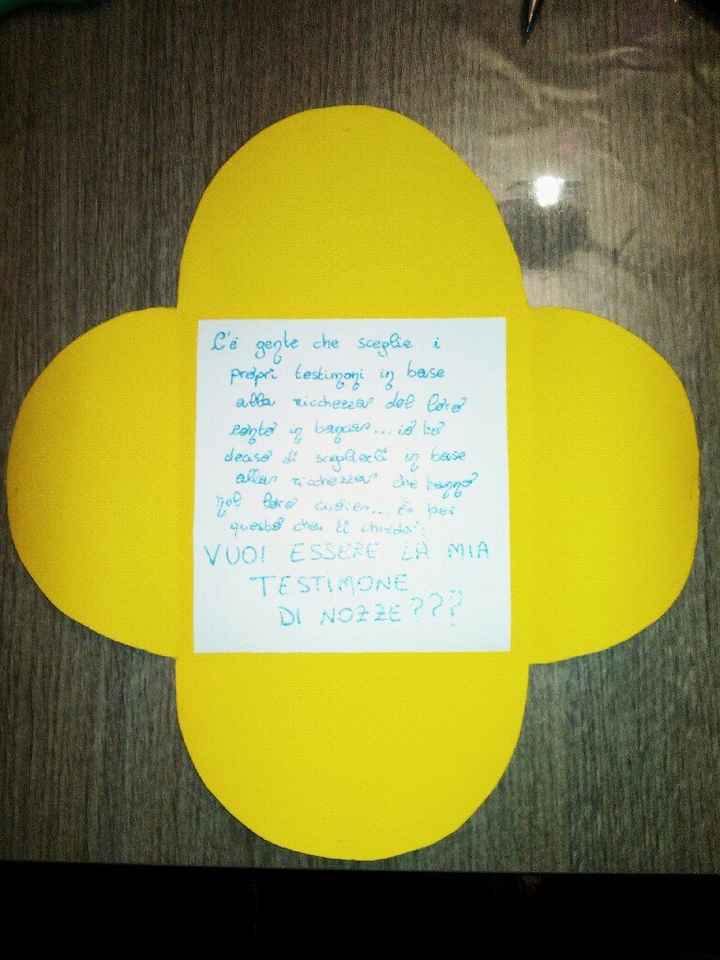 C'è gente che sceglie i
propri testimoni in base
alla ricchezza del loro
conto in banca... io ho
deciso di sceglierli in base
alla ricchezza che hanno
nel loro cuore... È per
questo che ti chiedo:
VUOI ESSERE LA MIA
TESTIMONE
DI NOZZE???